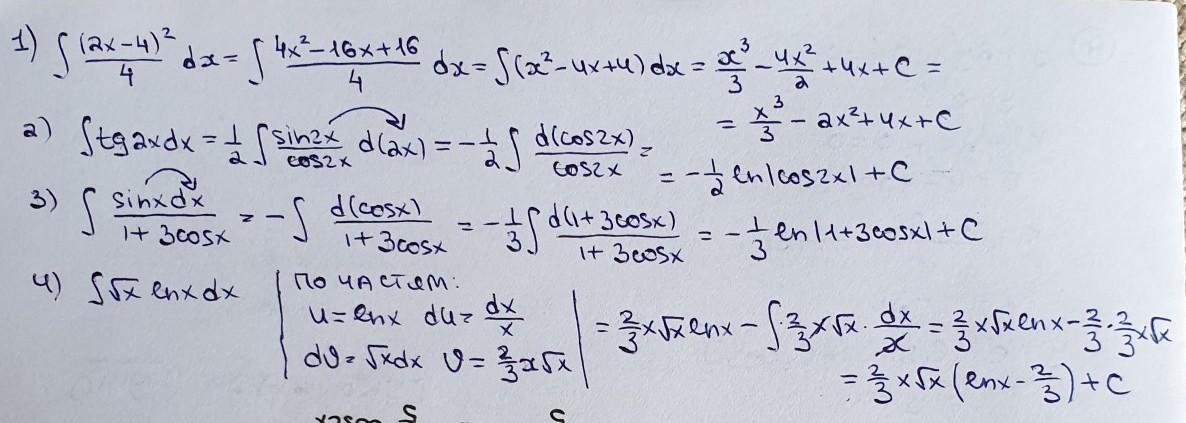 1) ∫ (2x-4)²/4 dx = ∫ (4x²-16x+16)/4 dx = ∫(x²-4x+4)dx = x³/3 - 4x²/2 + 4x + C =
= x³/3 - 2x² + 4x + C
2) ∫tg2xdx = 1/2 ∫ sin2x/cos2x d(2x) = -1/2 ∫ d(cos2x)/cos2x =
= -1/2 ln|cos2x| + C
3) ∫ sinxdx/(1+3cosx) = -∫ d(cosx)/(1+3cosx) = -1/3 ∫ d(1+3cosx)/(1+3cosx) = -1/3 ln|1+3cosx| + C
4) ∫√x lnx dx | по частям:
u = lnx du = dx/x
dv = √xdx v = 2/3 x√x | = 2/3 x√x lnx - ∫ 2/3 x√x · dx/x = 2/3 x√x lnx - 2/3 · 2/3 x√x
= 2/3 x√x (lnx - 2/3) + C